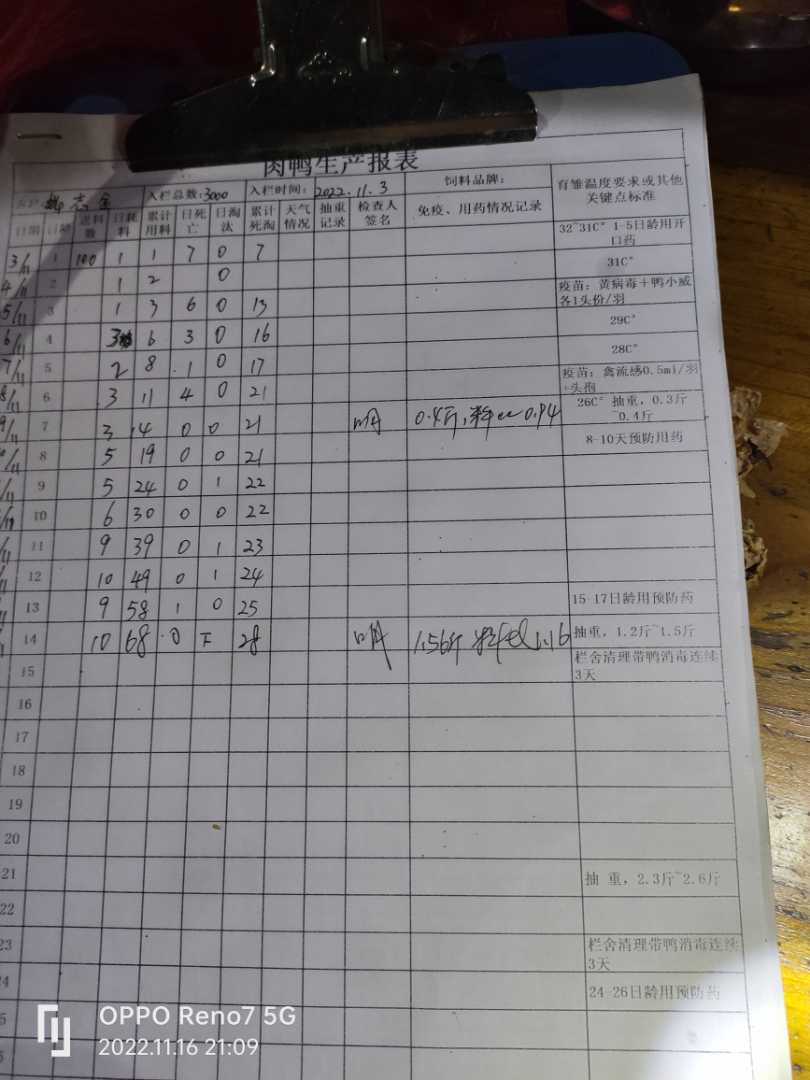 肉鸭生产报表
入栏总数:3000 入栏时间: 2022.11.3 饲料品牌: 育雏温度要求或其他关键点标准
日期 日龄 送料数 日耗料 累计用料 日死亡 日淘汰 累计死淘 天气情况 抽重记录 检查人签名 免疫、用药情况记录
3/11 1 100 1 1 7 0 7 32~31C° 1-5日龄用开口药
4/11 2 1 2 0 31C°
5/11 3 1 3 6 0 13 疫苗：黄病毒+鸭小威各1头份/羽
6/11 4 3 6 3 0 16 29C°
7/11 5 2 8 1 0 17 28C°
8/11 6 3 11 4 0 21 疫苗：禽流感0.5ml/羽+头孢
9/11 7 3 14 0 0 21 0.4斤, 0.94 26C° 抽重，0.3斤~0.4斤
8 5 19 0 0 21 8-10天预防用药
9 5 24 0 1 22
10 6 30 0 0 22
11 9 39 0 1 23
12 10 49 0 1 24
13 9 58 1 0 25 15-17日龄用预防药
14 10 68 0 28 1.56斤 1.16 抽重，1.2斤~1.5斤
15 栏舍清理带鸭消毒连续3天
16
17
18
19
20
21 抽 重，2.3斤~2.6斤
22
23 栏舍清理带鸭消毒连续3天
24 24-26日龄用预防药
OPPO Reno7 5G
2022.11.16 21:09